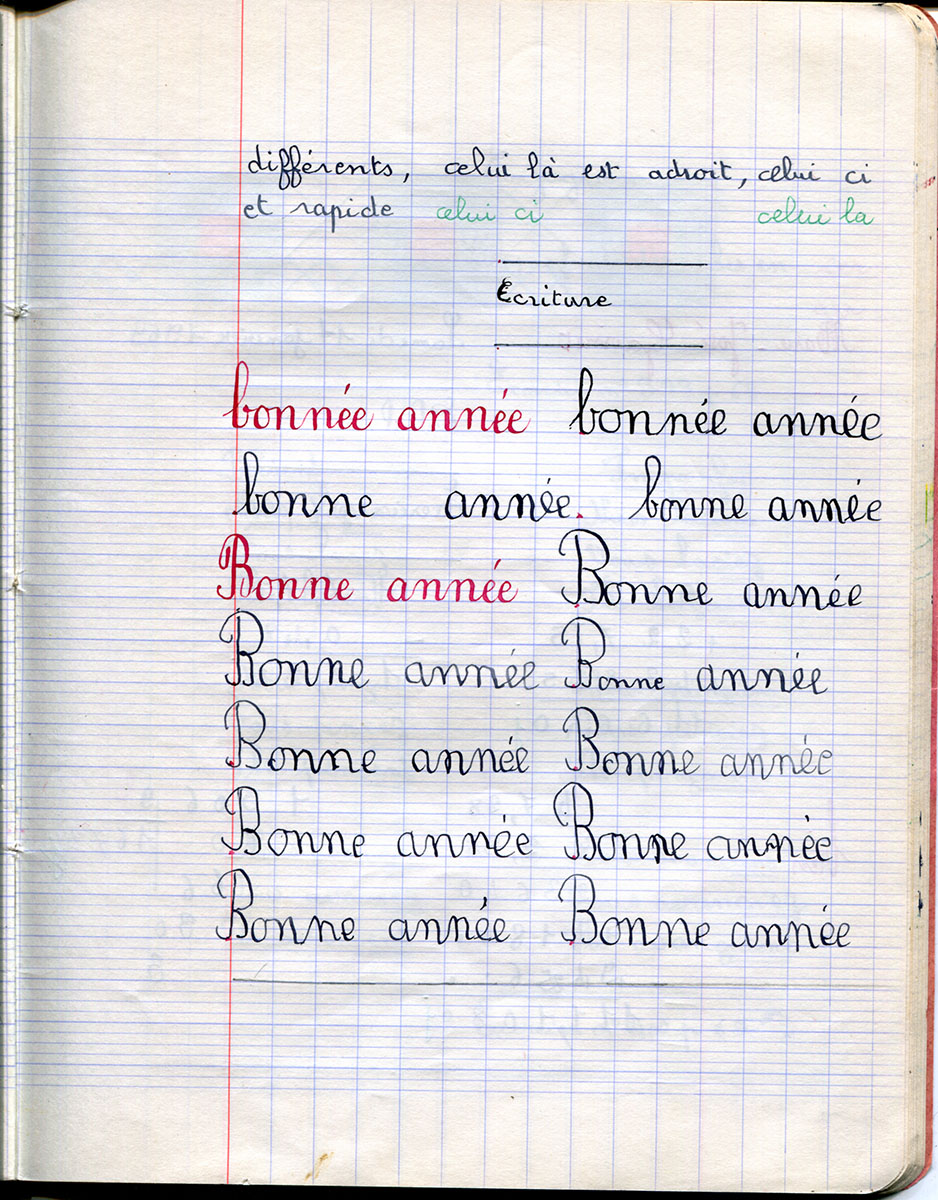 différents, celui là est adroit, celui ci
et rapide celui ci celui la
Ecriture
bonnée année bonnée année
bonne année. bonne année
Bonne année Bonne année
Bonne année Bonne année
Bonne année Bonne année
Bonne année Bonne année
Bonne année Bonne année